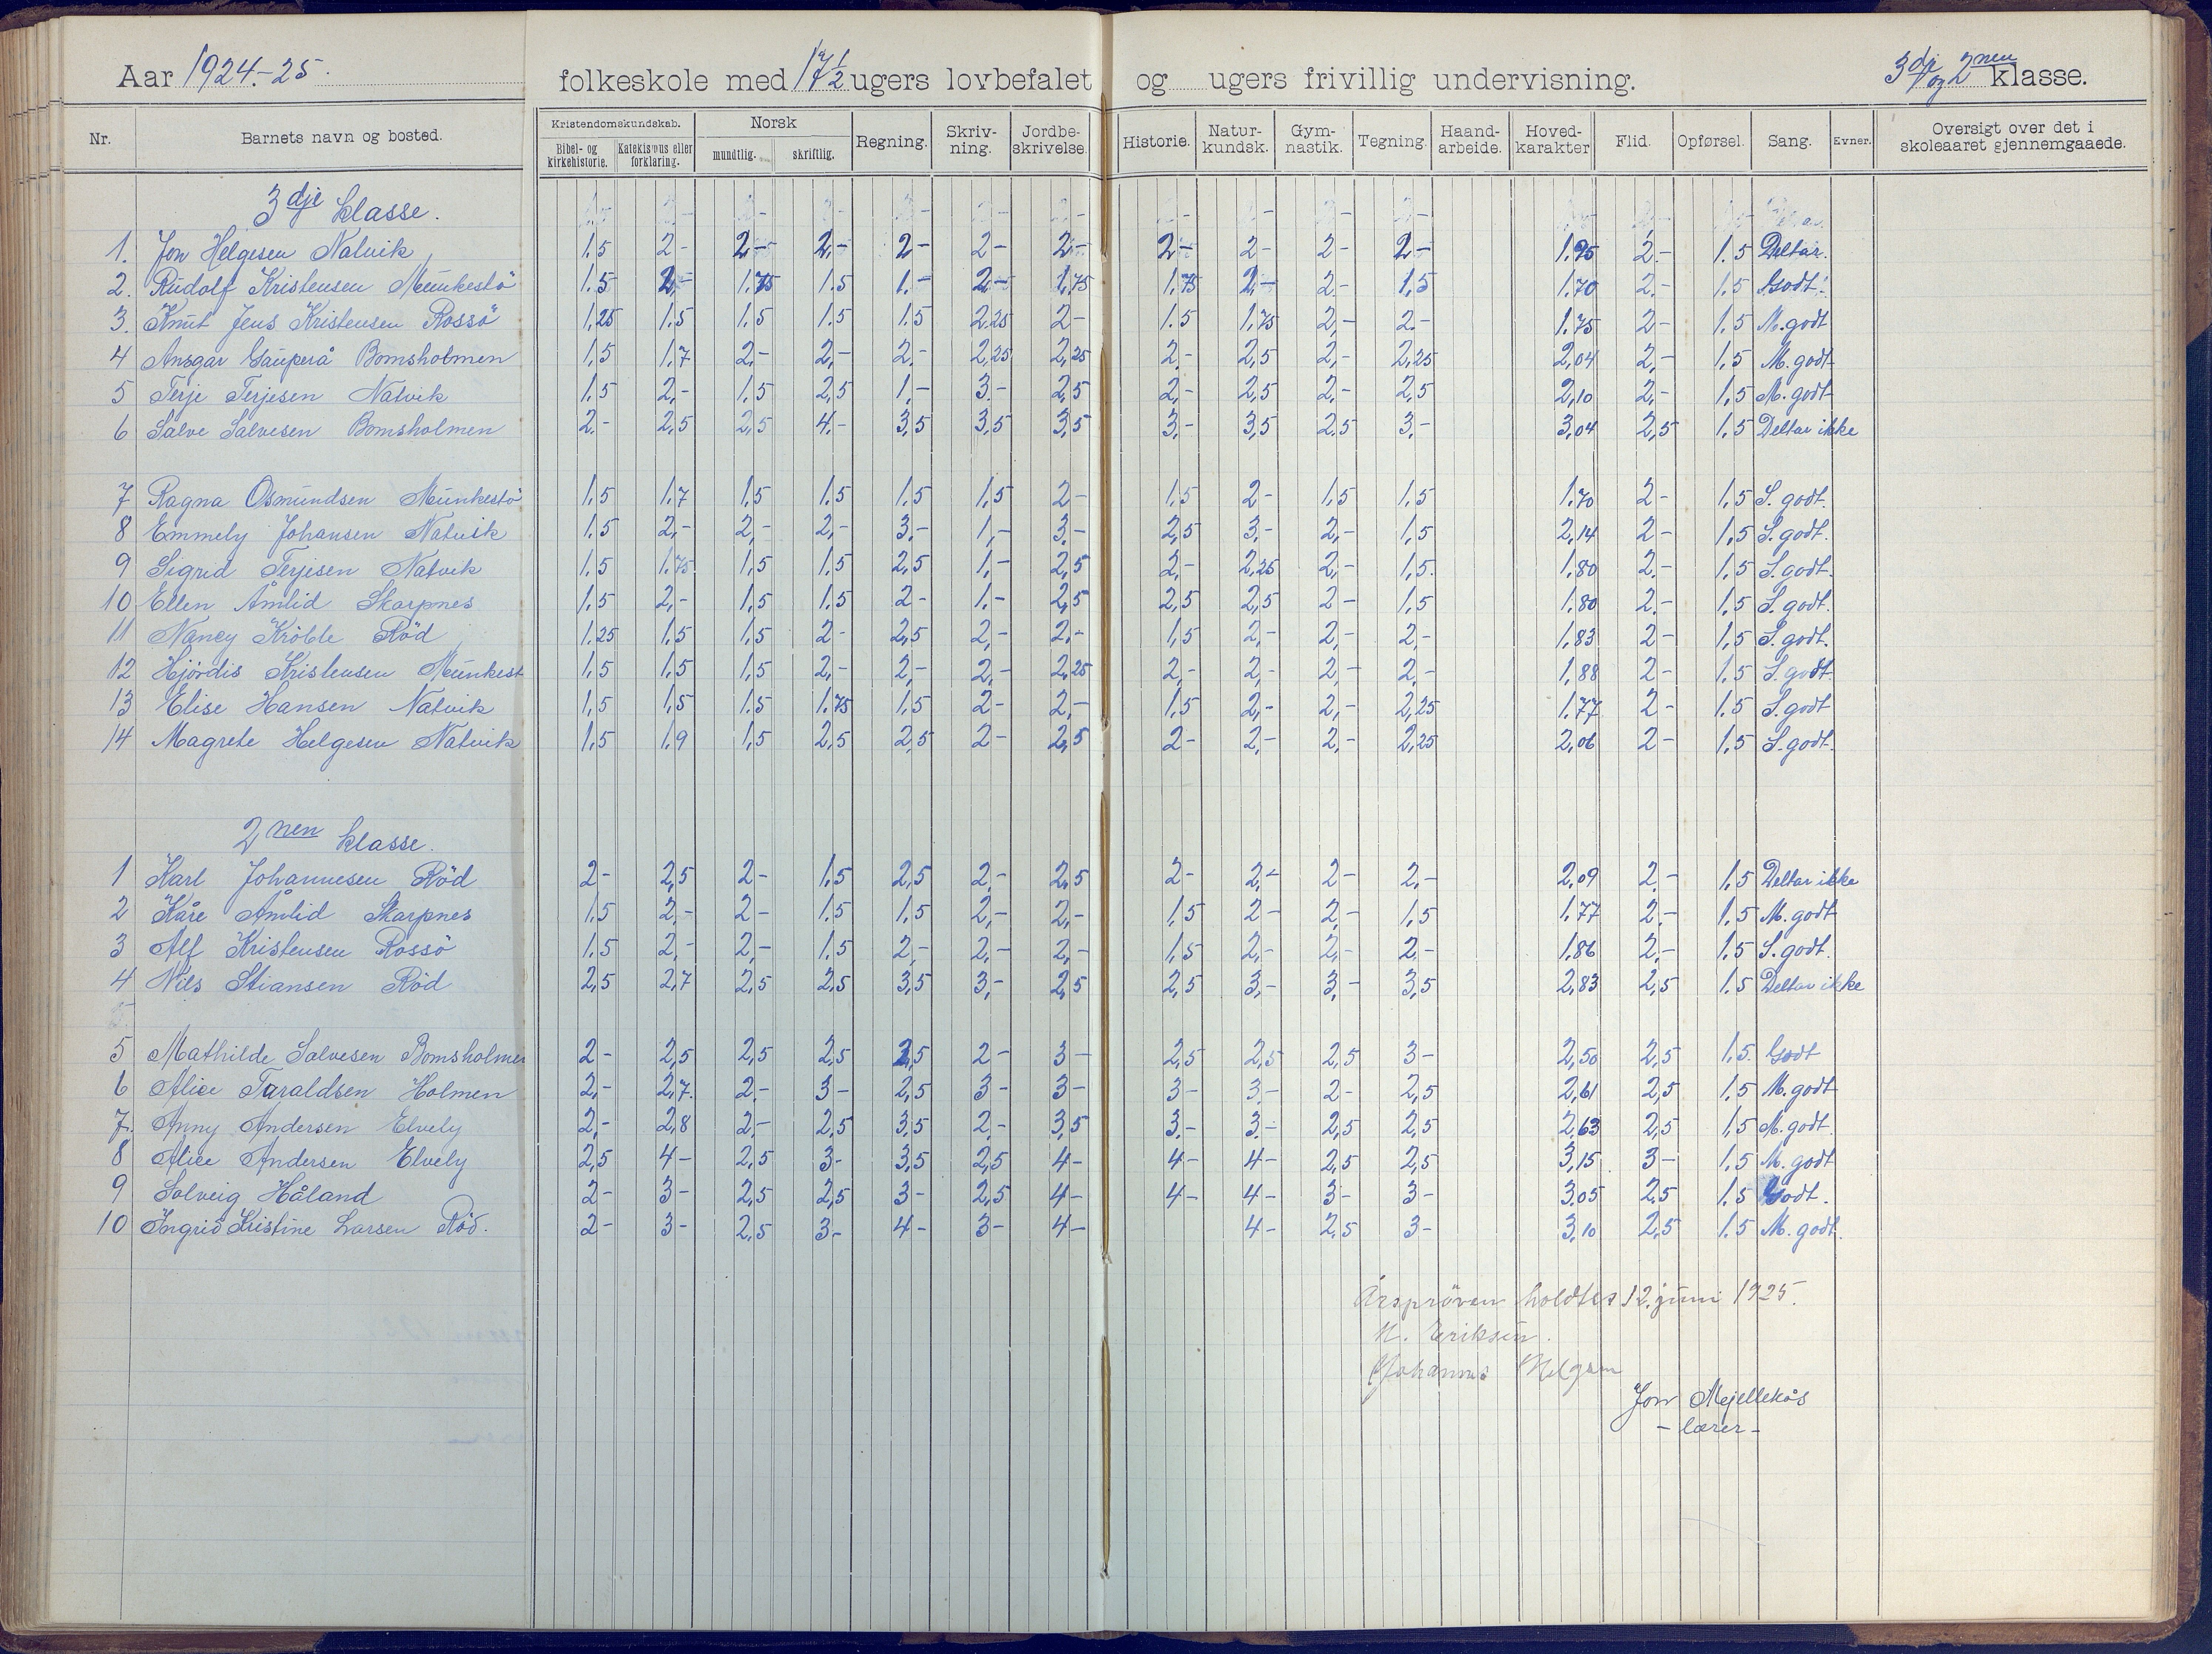 Aar 1924.-25. folkeskole med 17 1/2 ugers lovbefalet og ugers frivillig undervisning. 3dje og 2nen klasse.
Nr. Barnets navn og bosted. Kristendomskundskab. Bibel- og kirkehistorie. Katekismus eller forklaring. Norsk mundtlig. skriftlig. Regning. Skriv-ning. Jordbe-skrivelse. Historie. Natur-kundsk. Gym-nastik. Tegning. Haand-arbeide. Hoved-karakter Flid. Opførsel. Sang. Evner. Oversigt over det i skoleaaret gjennemgaaede.
3dje klasse.
1. Jon Helgesen Natvik 1,5 2- 2,- 2,- 2- 2- 2,- 2,- 2- 2- 2,- 1.95 2.- 1.5 Deltar.
2. Rudolf Kristensen Munkestö 1.5 2,- 1.75 1.5 1.- 2,- 1,75 1,75 2,- 2.- 1,5 1.70 2.- 1.5 Godt.
3. Knut Jens Kristensen Rossö 1,25 1.5 1.5 1.5 1.5 2.25 2- 1.5 1.75 2,- 2.- 1.75 2- 1.5 M.godt
4 Ansgar Gauperå Bomsholmen 1,5 1.7 2,- 2,- 2,- 2,25 2,25 2,- 2,5 2,- 2,25 2,04 2,- 1,5 M.godt
5 Terje Terjesen Natvik 1.5 2,- 1,5 2,5 1,- 3.- 2,5 2,- 2,5 2,- 2,5 2,10 2,- 1,5 M.godt
6 Salve Salvesen Bomsholmen 2.- 2,5 2,5 4.- 3,5 3,5 3,5 3,- 3,5 2,5 3,- 3,04 2,5 1,5 Deltar ikke
7 Ragna Osmundsen Munkestö 1,5 1.7 1,5 1,5 1,5 1,5 2- 1,5 2- 1,5 1,5 1.70 2- 1,5 S. godt.
8 Emmely Johansen Natvik 1.5 2,- 2,- 2,- 3,- 1,- 3.- 2,5 3.- 2,- 1,5 2,14 2- 1,5 S.godt.
9 Sigrid Terjesen Natvik 1,5 1.75 1,5 1.5 2,5 1,- 2,5 2,- 2,25 2,- 1,5. 1,80 2.- 1,5 S.godt.
10 Ellen Åmlid Skarpnes 1,5 2,- 1,5 1.5 2- 1.- 2,5 2,5 2,5 2- 1,5 1,80 2.- 1.5 S.godt.
11 Nancy Kröble Röd 1.25 1,5 1,5 2- 2,5 2,- 2,- 1,5 2,- 2,- 2,- 1,83 2- 1,5 S.godt.
12 Hjördis Kristensen Munkest 1,5 1,5 1,5 2,- 2,- 2,- 2,25 2,- 2,- 2,- 2,- 1,88 2- 1.5 S.godt
13 Elise Hansen Natvik 1,5 1,5 1.5 1.75 1,5 2- 2,- 1,5 2,- 2,- 2,25 1.77 2- 1.5 S.godt
14 Magrete Helgesen Natvik 1,5 1.9 1,5 2,5 2,5 2- 2,5 2- 2,- 2,- 2,25 2,06 2- 1,5 S.godt.
2nen klasse.
1 Karl Johannesen Röd 2- 2,5 2- 1.5 2,5 2,- 2,5 2- 2,- 2- 2,- 2,09 2.- 1,5 Deltar ikke
2 Kåre Åmlid Skarpnes 1.5 2,- 2- 1.5 1,5 2,- 2,- 1,5 2- 2,- 1,5 1.77 2.- 1.5 M.godt
3 Alf Kristensen Rossö 1.5 2,- 2,- 1.5 2,- 2,- 2,- 1,5 2,- 2,- 2,- 1.86 2,- 1.5 S.godt.
4 Nils Stiansen Röd 2,5 2,7 2,5 2,5 3,5 3,- 2,5 2,5 3,- 3,- 3,5 2,83 2,5 1.5 Deltar ikke
5 Mathilde Salvesen Bomsholmen 2- 2,5 2,5 2,5 2,5 2- 3- 2,5 2,5 2,5 3- 2,50 2,5 1.5. Godt
6 Alice Taraldsen Holmen 2,- 2,7. 2,- 3- 2,5 3- 3- 3- 3,- 2- 2,5 2,61 2,5 1.5 M.godt
7. Anny Andersen Elvely 2,- 2,8 2,- 2,5 3,5 2,- 3,5 3,- 3,- 2,5 2,5 2,63 2,5 1,5 M.godt.
8 Alice Andersen Elvely 2,5 4- 2,5 3- 3,5 2,5 4- 4- 4- 2,5 2,5 3,15 3- 1,5 M.godt
9 Solveig Håland 2- 3- 2,5 2,5 3- 2,5 4- 4- 4- 3- 3- 3.05 2.5 1.5 Godt.
10 Ingrid Kristine Larsen Röd. 2- 3- 2,5 3- 4- 3- 4- 4- 2,5 3- 3,10 2,5 1.5 M. godt.
Årspröven holdtes 12. juni 1925.
N. Eriksen.
Johannes Helgesen
Jon Mjellekås
- lærer -